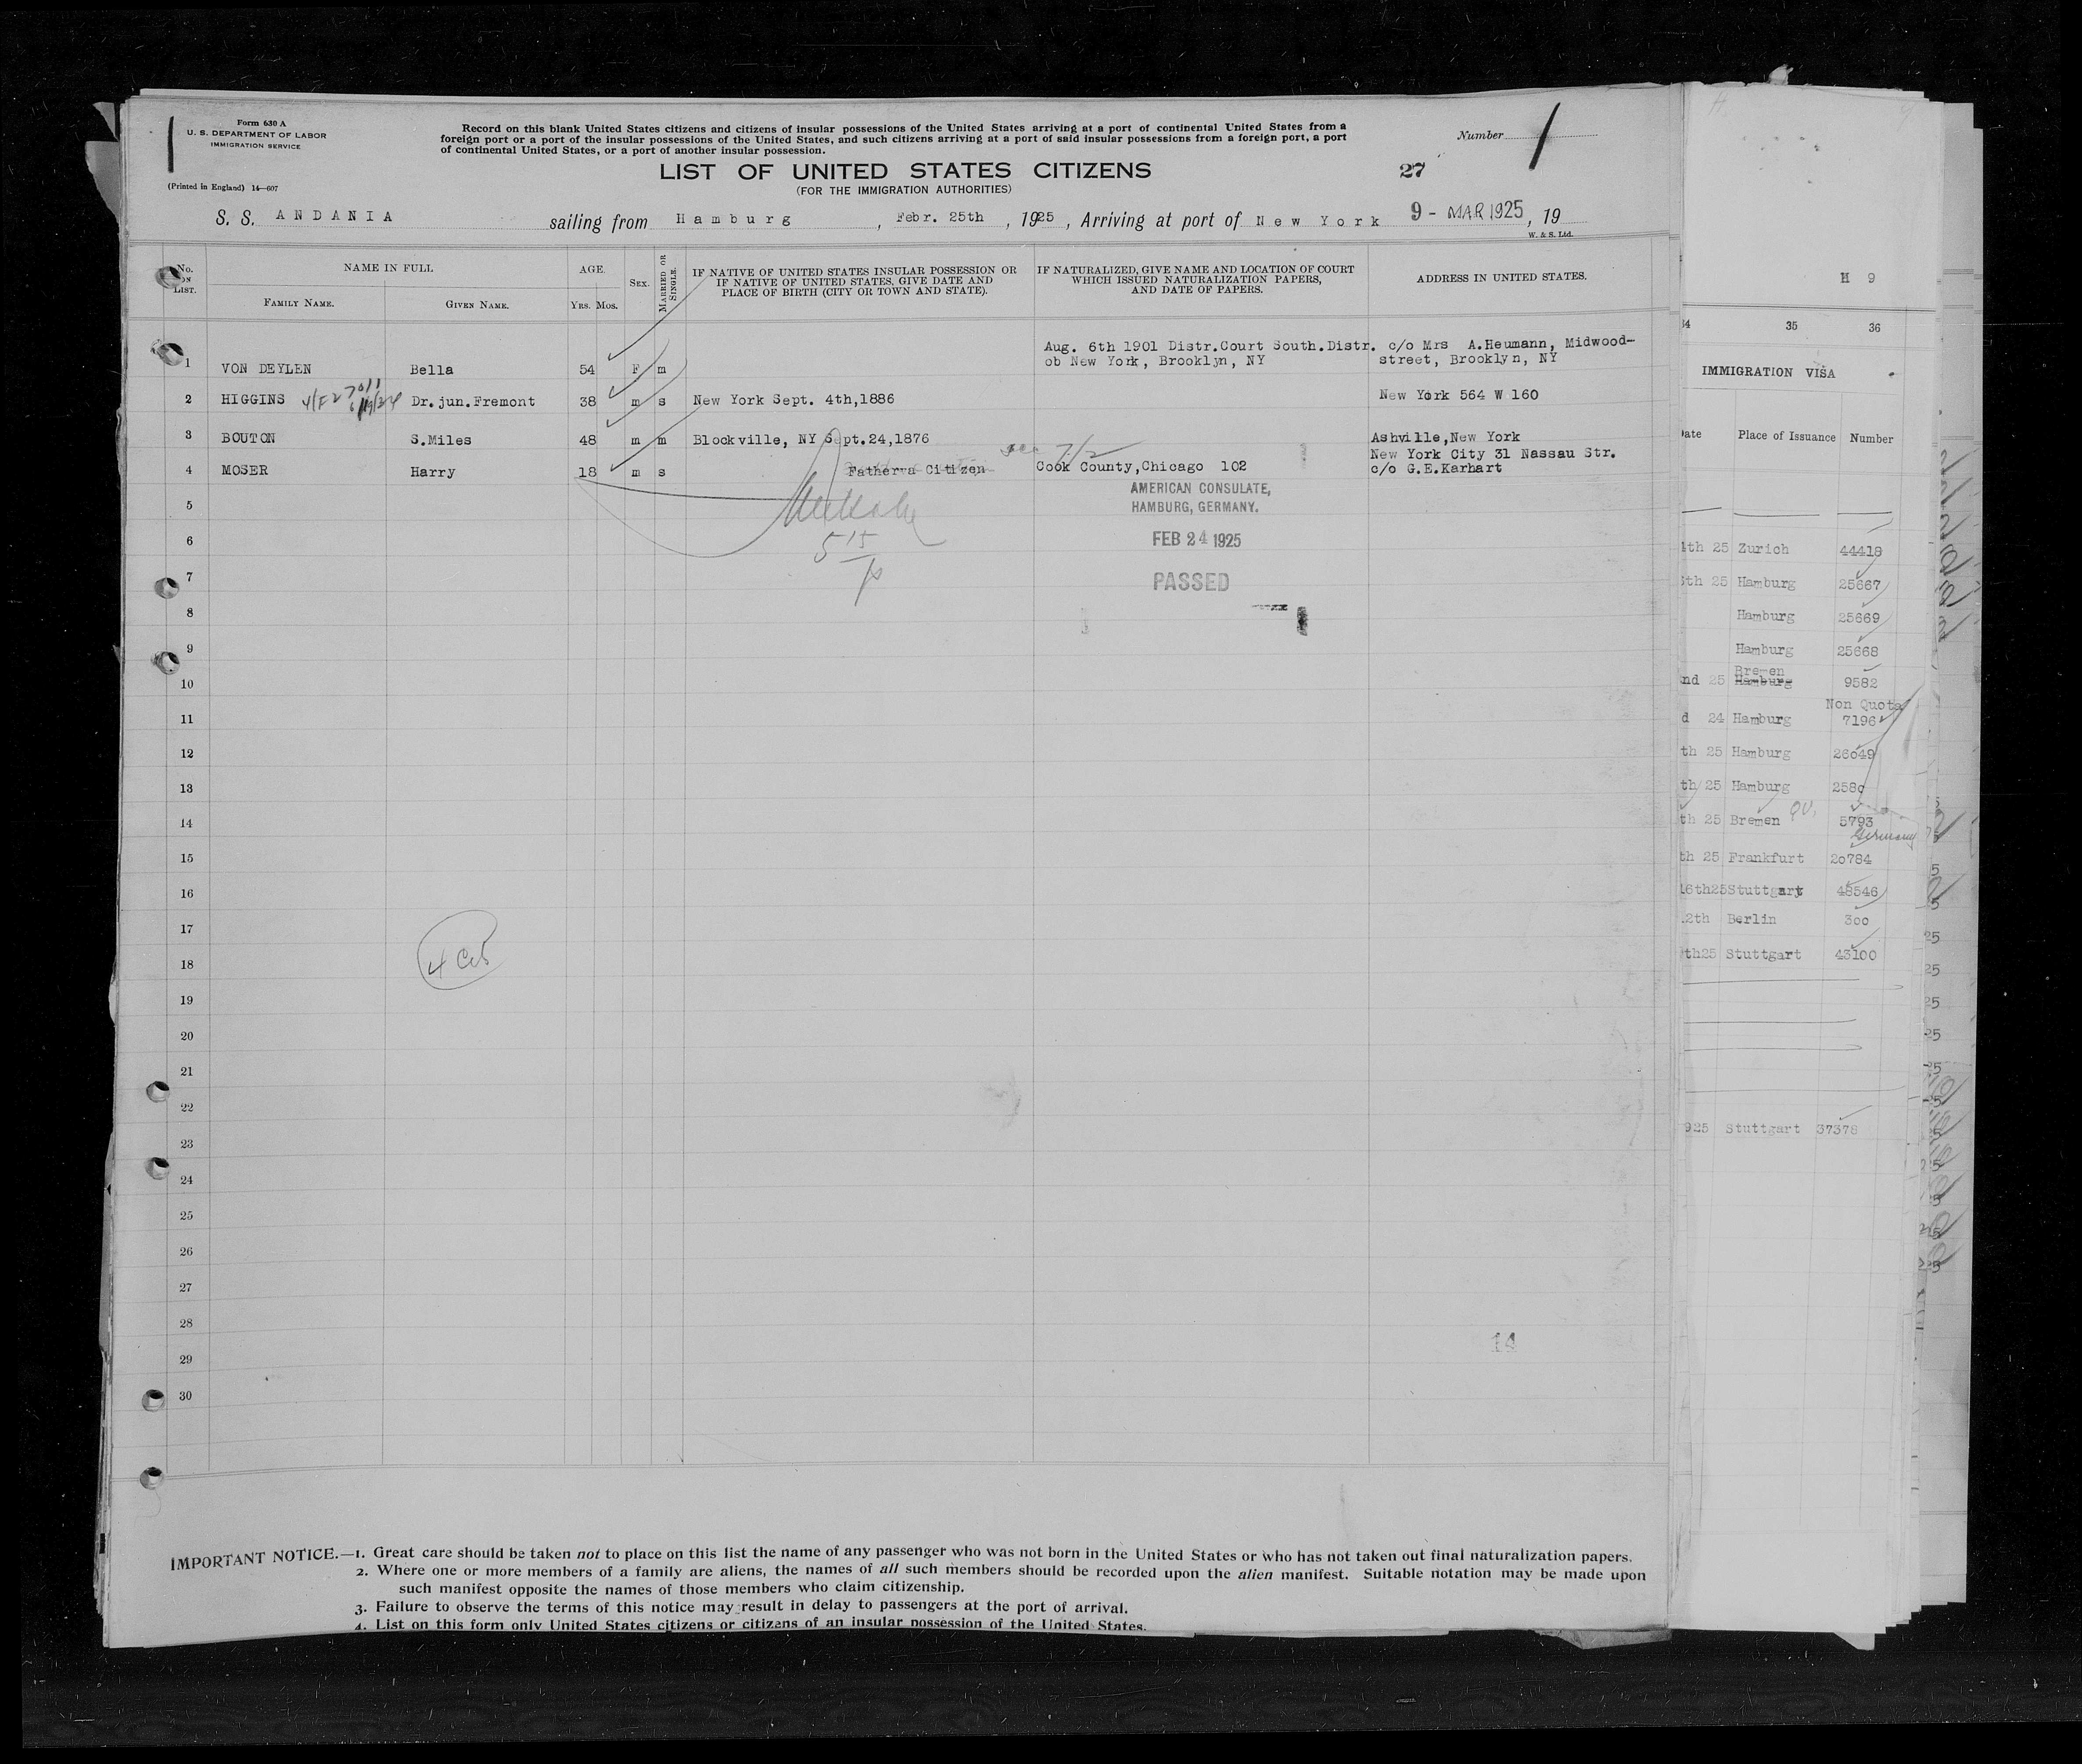 Form 630 A
U. S. DEPARTMENT OF LABOR
IMMIGRATION SERVICE
(Printed in England) 14—607
Record on this blank United States citizens and citizens of insular possessions of the United States arriving at a port of continental United States from a
foreign port or a port of the insular possessions of the United States, and such citizens arriving at a port of said insular possessions from a foreign port, a port
of continental United States, or a port of another insular possession.
Number 1
LIST OF UNITED STATES CITIZENS
27
(FOR THE IMMIGRATION AUTHORITIES)
S. S. ANDANIA sailing from Hamburg, Febr. 25th, 1925, Arriving at port of New York 9 - MAR 1925, 19
W. & S. Ltd.
No. ON LIST.
NAME IN FULL
FAMILY NAME.
GIVEN NAME.
AGE.
YRS. MOS.
SEX.
MARRIED OR SINGLE.
IF NATIVE OF UNITED STATES INSULAR POSSESSION OR
IF NATIVE OF UNITED STATES, GIVE DATE AND
PLACE OF BIRTH (CITY OR TOWN AND STATE).
IF NATURALIZED, GIVE NAME AND LOCATION OF COURT
WHICH ISSUED NATURALIZATION PAPERS,
AND DATE OF PAPERS.
ADDRESS IN UNITED STATES.
1 VON DEYLEN Bella 54 F m Aug. 6th 1901 Distr.Court South.Distr. c/o Mrs A.Heumann, Midwood-
ob New York, Brooklyn, NY street, Brooklyn, NY
2 HIGGINS Dr.jun.Fremont 38 m s New York Sept. 4th,1886 New York 564 W 160
3 BOUTON S.Miles 48 m m Blockville, NY Sept.24,1876 Ashville,New York
New York City 31 Nassau Str.
4 MOSER Harry 18 m s Fatherva Citizen Cook County,Chicago 102 c/o G.E.Karhart
AMERICAN CONSULATE,
HAMBURG, GERMANY.
FEB 24 1925
PASSED
5
6
7
8
9
10
11
12
13
14
15
16
17
18
19
20
21
22
23
24
25
26
27
28
29
30
14
IMPORTANT NOTICE.—1. Great care should be taken not to place on this list the name of any passenger who was not born in the United States or who has not taken out final naturalization papers.
2. Where one or more members of a family are aliens, the names of all such members should be recorded upon the alien manifest. Suitable notation may be made upon
such manifest opposite the names of those members who claim citizenship.
3. Failure to observe the terms of this notice may result in delay to passengers at the port of arrival.
4. List on this form only United States citizens or citizens of an insular possession of the United States.
H 9
34 35 36
IMMIGRATION VISA
Date Place of Issuance Number
th 25 Zurich 44418
th 25 Hamburg 25667
Hamburg 25669
Hamburg 25668
Bremen
nd 25 Hamburg 9582
Non Quota
d 24 Hamburg 7196
th 25 Hamburg 26049
th 25 Hamburg 2580
th 25 Bremen 5793
Germany
th 25 Frankfurt 20784
16th25 Stuttgart 48546
2th Berlin 300
th25 Stuttgart 43100
925 Stuttgart 37378